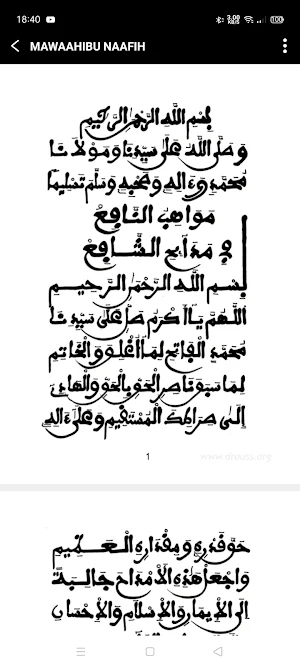 18:40
MAWAAHIBU NAAFIH
بِسْمِ اللَّهِ الرَّحْمَٰنِ الرَّحِيمِ
وَصَلَّى اللَّهُ عَلَى سَيِّدِنَا وَمَوْلَانَا
مُحَمَّدٍ وَءَالِهِ وَصَحْبِهِ وَسَلَّمَ تَسْلِيمًا
مَوَاهِبُ النَّافِعْ
فِي مَدَائِحِ الشَّافِعْ
بِسْمِ اللَّهِ الرَّحْمَٰنِ الرَّحِيمِ
اللَّهُمَّ يَا أَكْرَمُ صَلِّ عَلَى سَيِّدِنَا
مُحَمَّدٍ الْفَاتِحِ لِمَا أُغْلِقَ وَالْخَاتِمِ
لِمَا سَبَقَ نَاصِرِ الْحَقِّ بِالْحَقِّ وَالْهَادِي
إِلَى صِرَاطِكَ الْمُسْتَقِيمِ وَعَلَى ءَالِهِ
1
www.drouss.org
حَقَّ قَدْرِهِ وَمِقْدَارِهِ الْعَظِيمِ
وَاجْعَلْ هَذِهِ الْأَمْدَاحَ جَالِبَةً
إِلَى الْإِيمَانِ وَالْإِسْلَامِ وَالْإِحْسَانِ